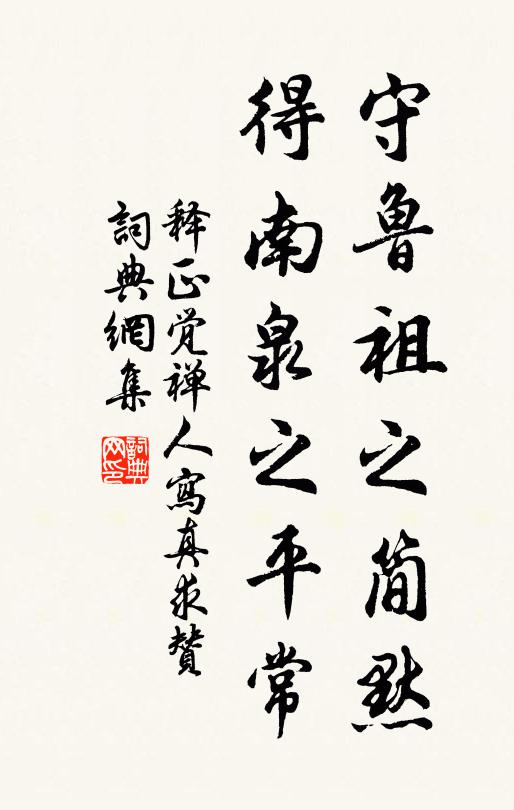 守魯祖之简默
得南泉之平常
释正觉禅人寫真求贊
詞典網集
詞典网印